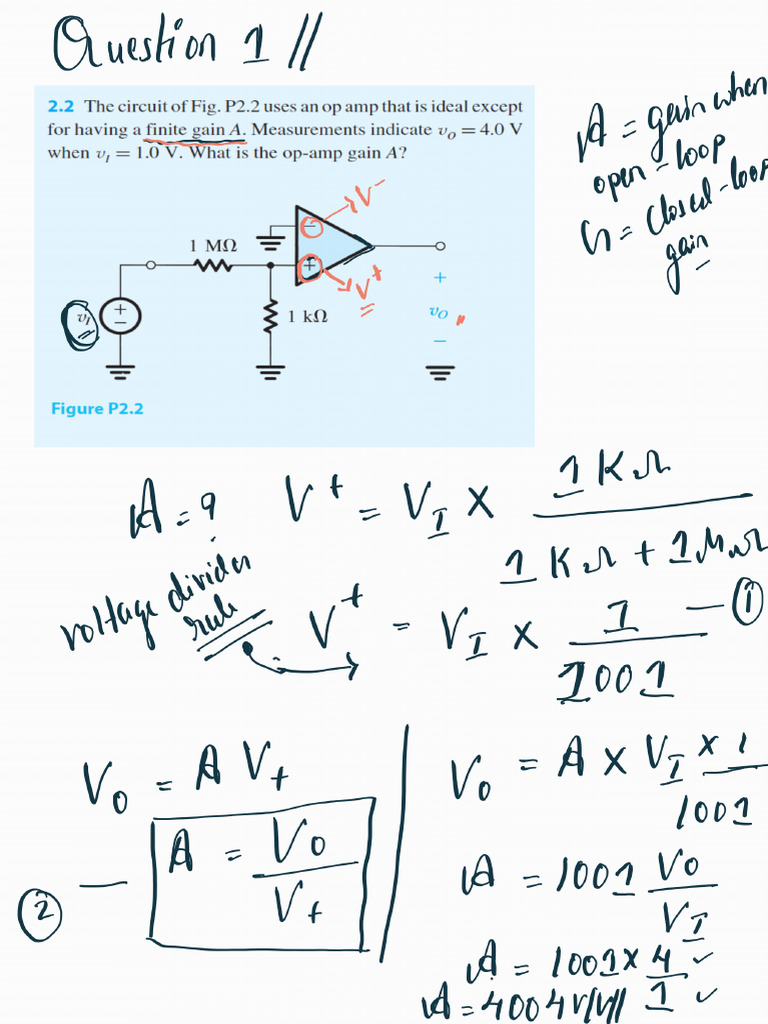 Question 1 //
2.2 The circuit of Fig. P2.2 uses an op amp that is ideal except
for having a finite gain A. Measurements indicate v_O = 4.0 V
when v_I = 1.0 V. What is the op-amp gain A?
A = gain when
open-loop
G = closed-loop
gain
V⁻
1 MΩ
−
+
V⁺
v_I
+
−
1 kΩ
+
v_O
−
Figure P2.2
A = ?
V⁺ = V_I × 1KΩ / (1KΩ + 1MΩ)
voltage divider
rule
V⁺ = V_I × 1/1001 — ①
V_o = A V_+
② — A = V_o / V_+
V_o = A × V_I × 1/1001
A = 1001 V_o / V_I
A = 1001 × 4/1 ✓ ✓
A = 4004 V/V //